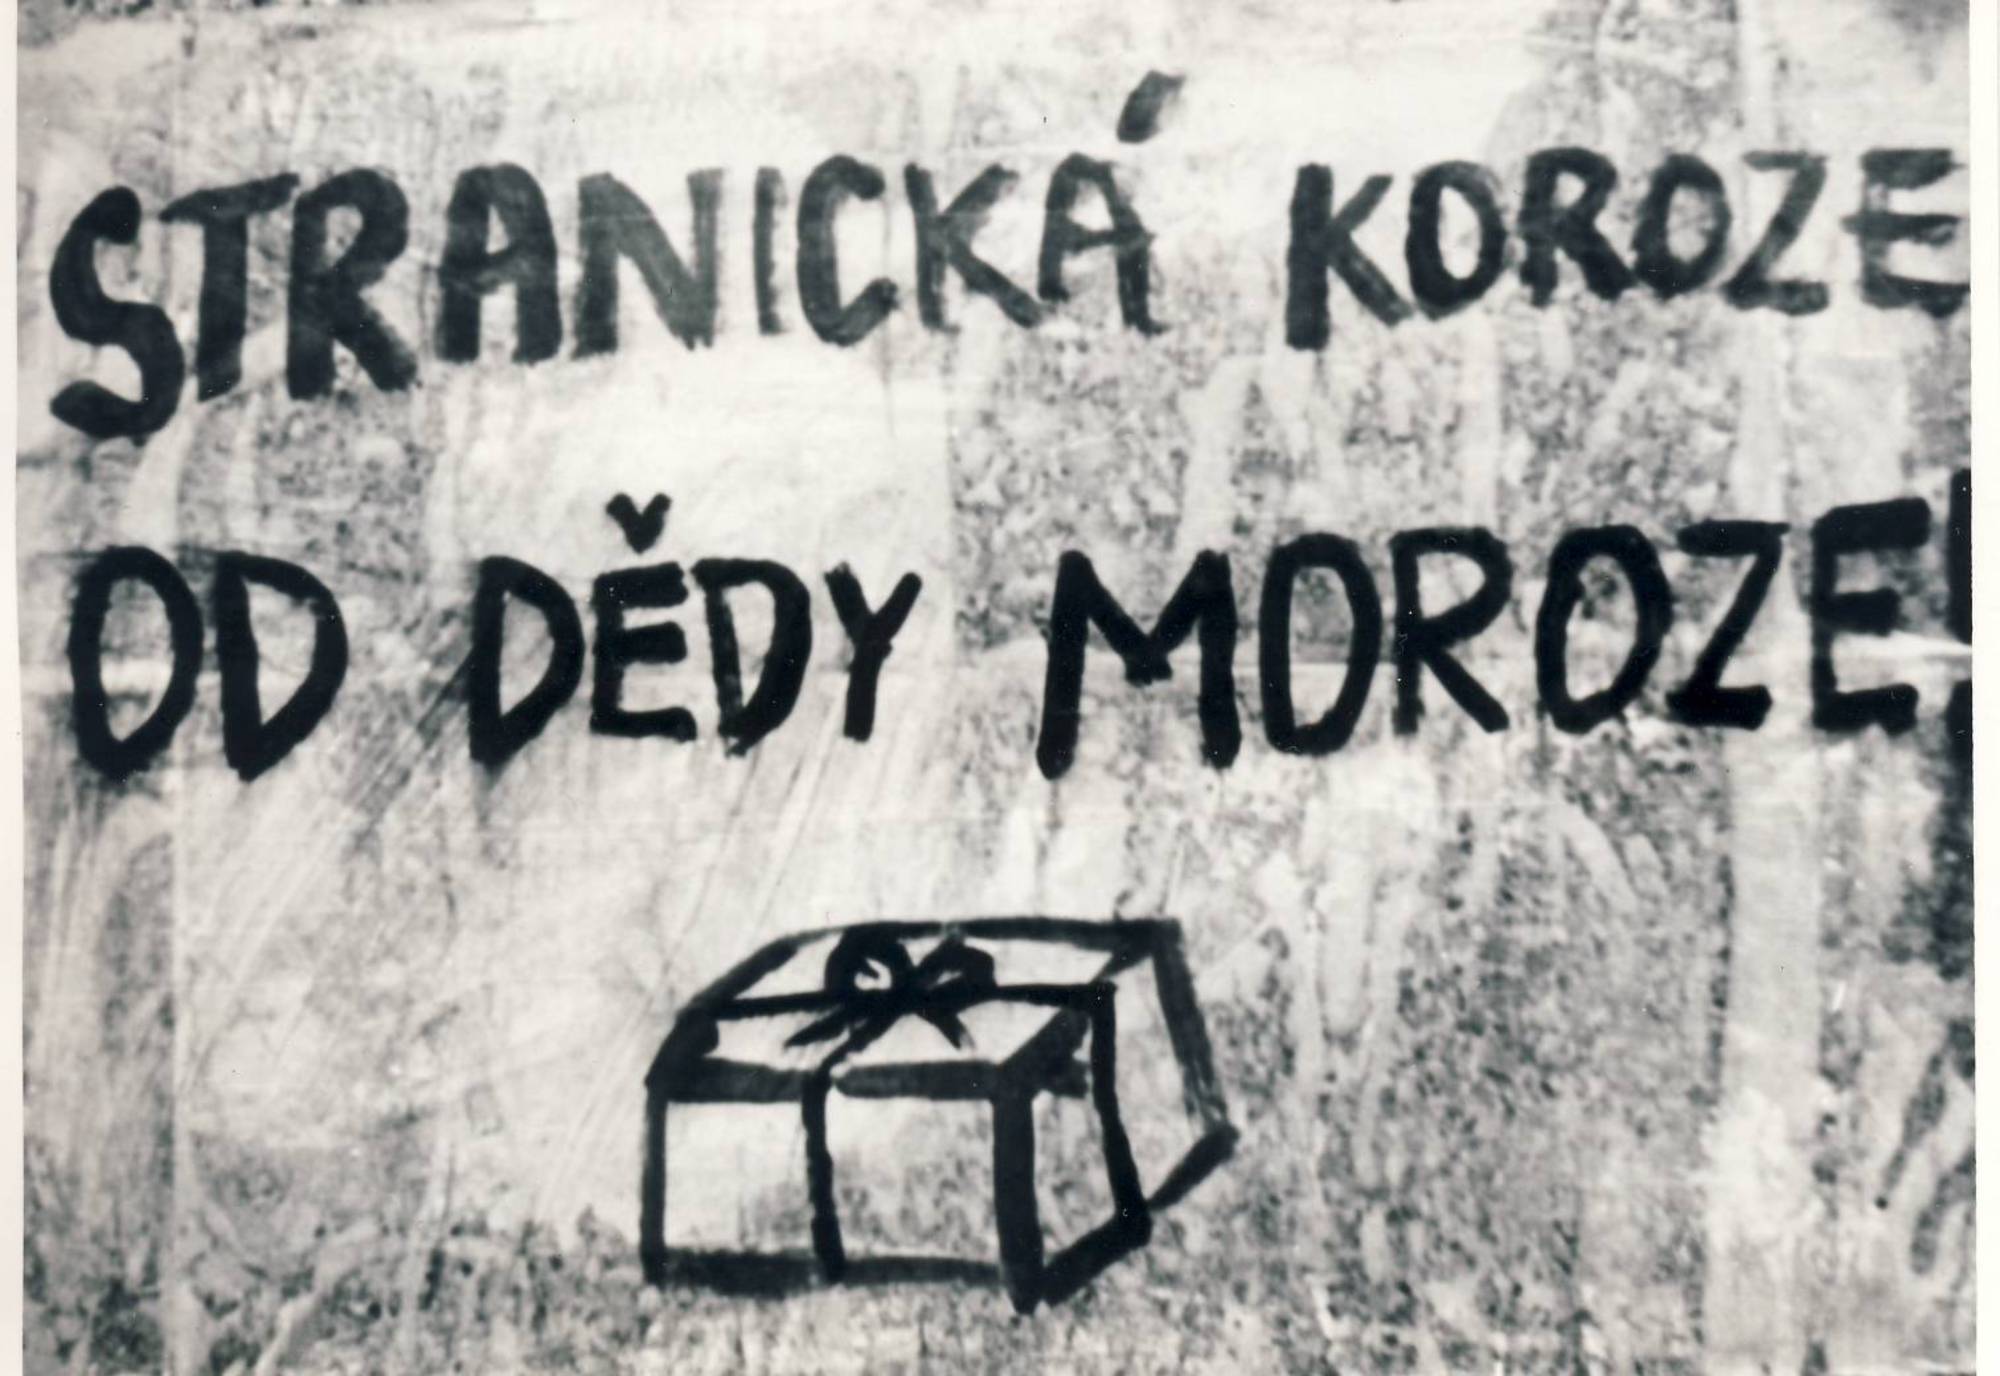 STRANICKÁ KOROZE
OD DĚDY MOROZE!